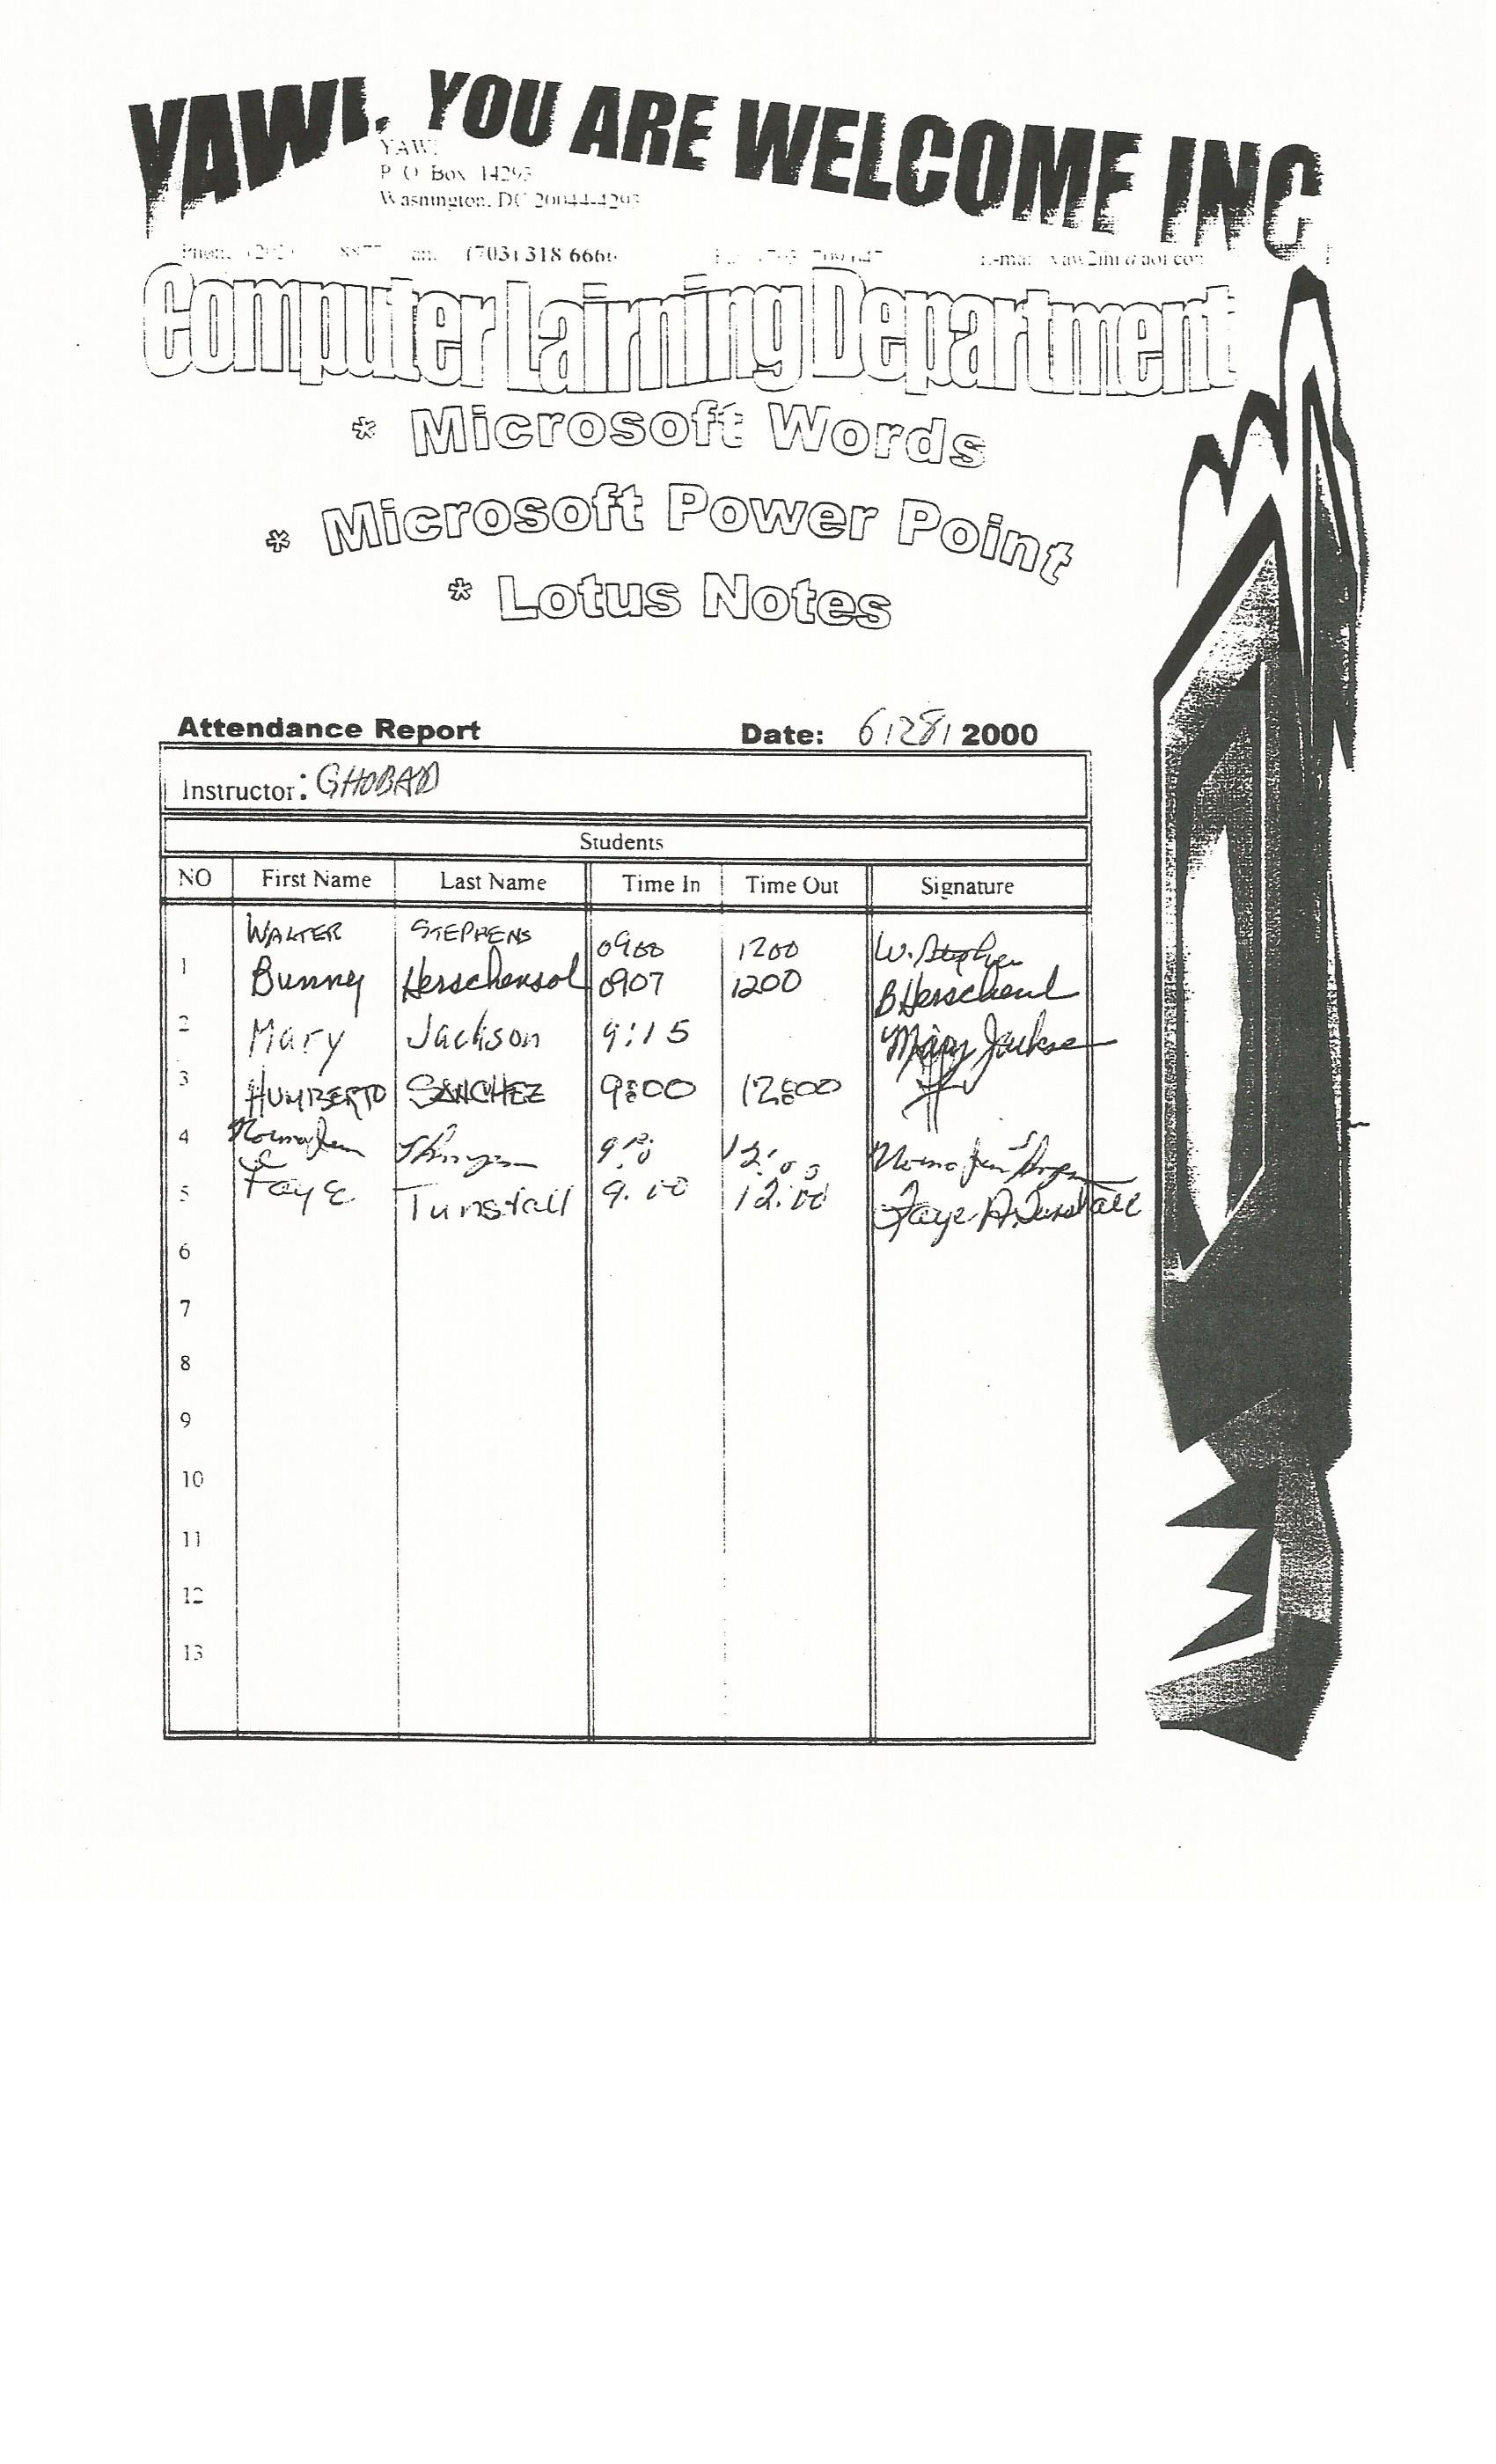 YAWI, YOU ARE WELCOME INC
YAWI
P.O. Box 14293
Washington, DC 20044-4293
(703) 318 6666
Computer Lairning Department
* Microsoft Words
* Microsoft Power Point
* Lotus Notes
Attendance Report Date: 6/28/2000
Instructor: GHOBAD
Students
NO First Name Last Name Time In Time Out Signature
WALTER STEPHENS 0900 1200 W. Stephen
1 Bunny Herschensol 0907 1200 B Herschensol
2 Mary Jackson 9:15 Mary Jackson
3 HUMBERTO SANCHEZ 9:00 12:00
4 12:00
5 Faye Tunstall 9.10 12:00 Faye A. Tunstall
6
7
8
9
10
11
12
13